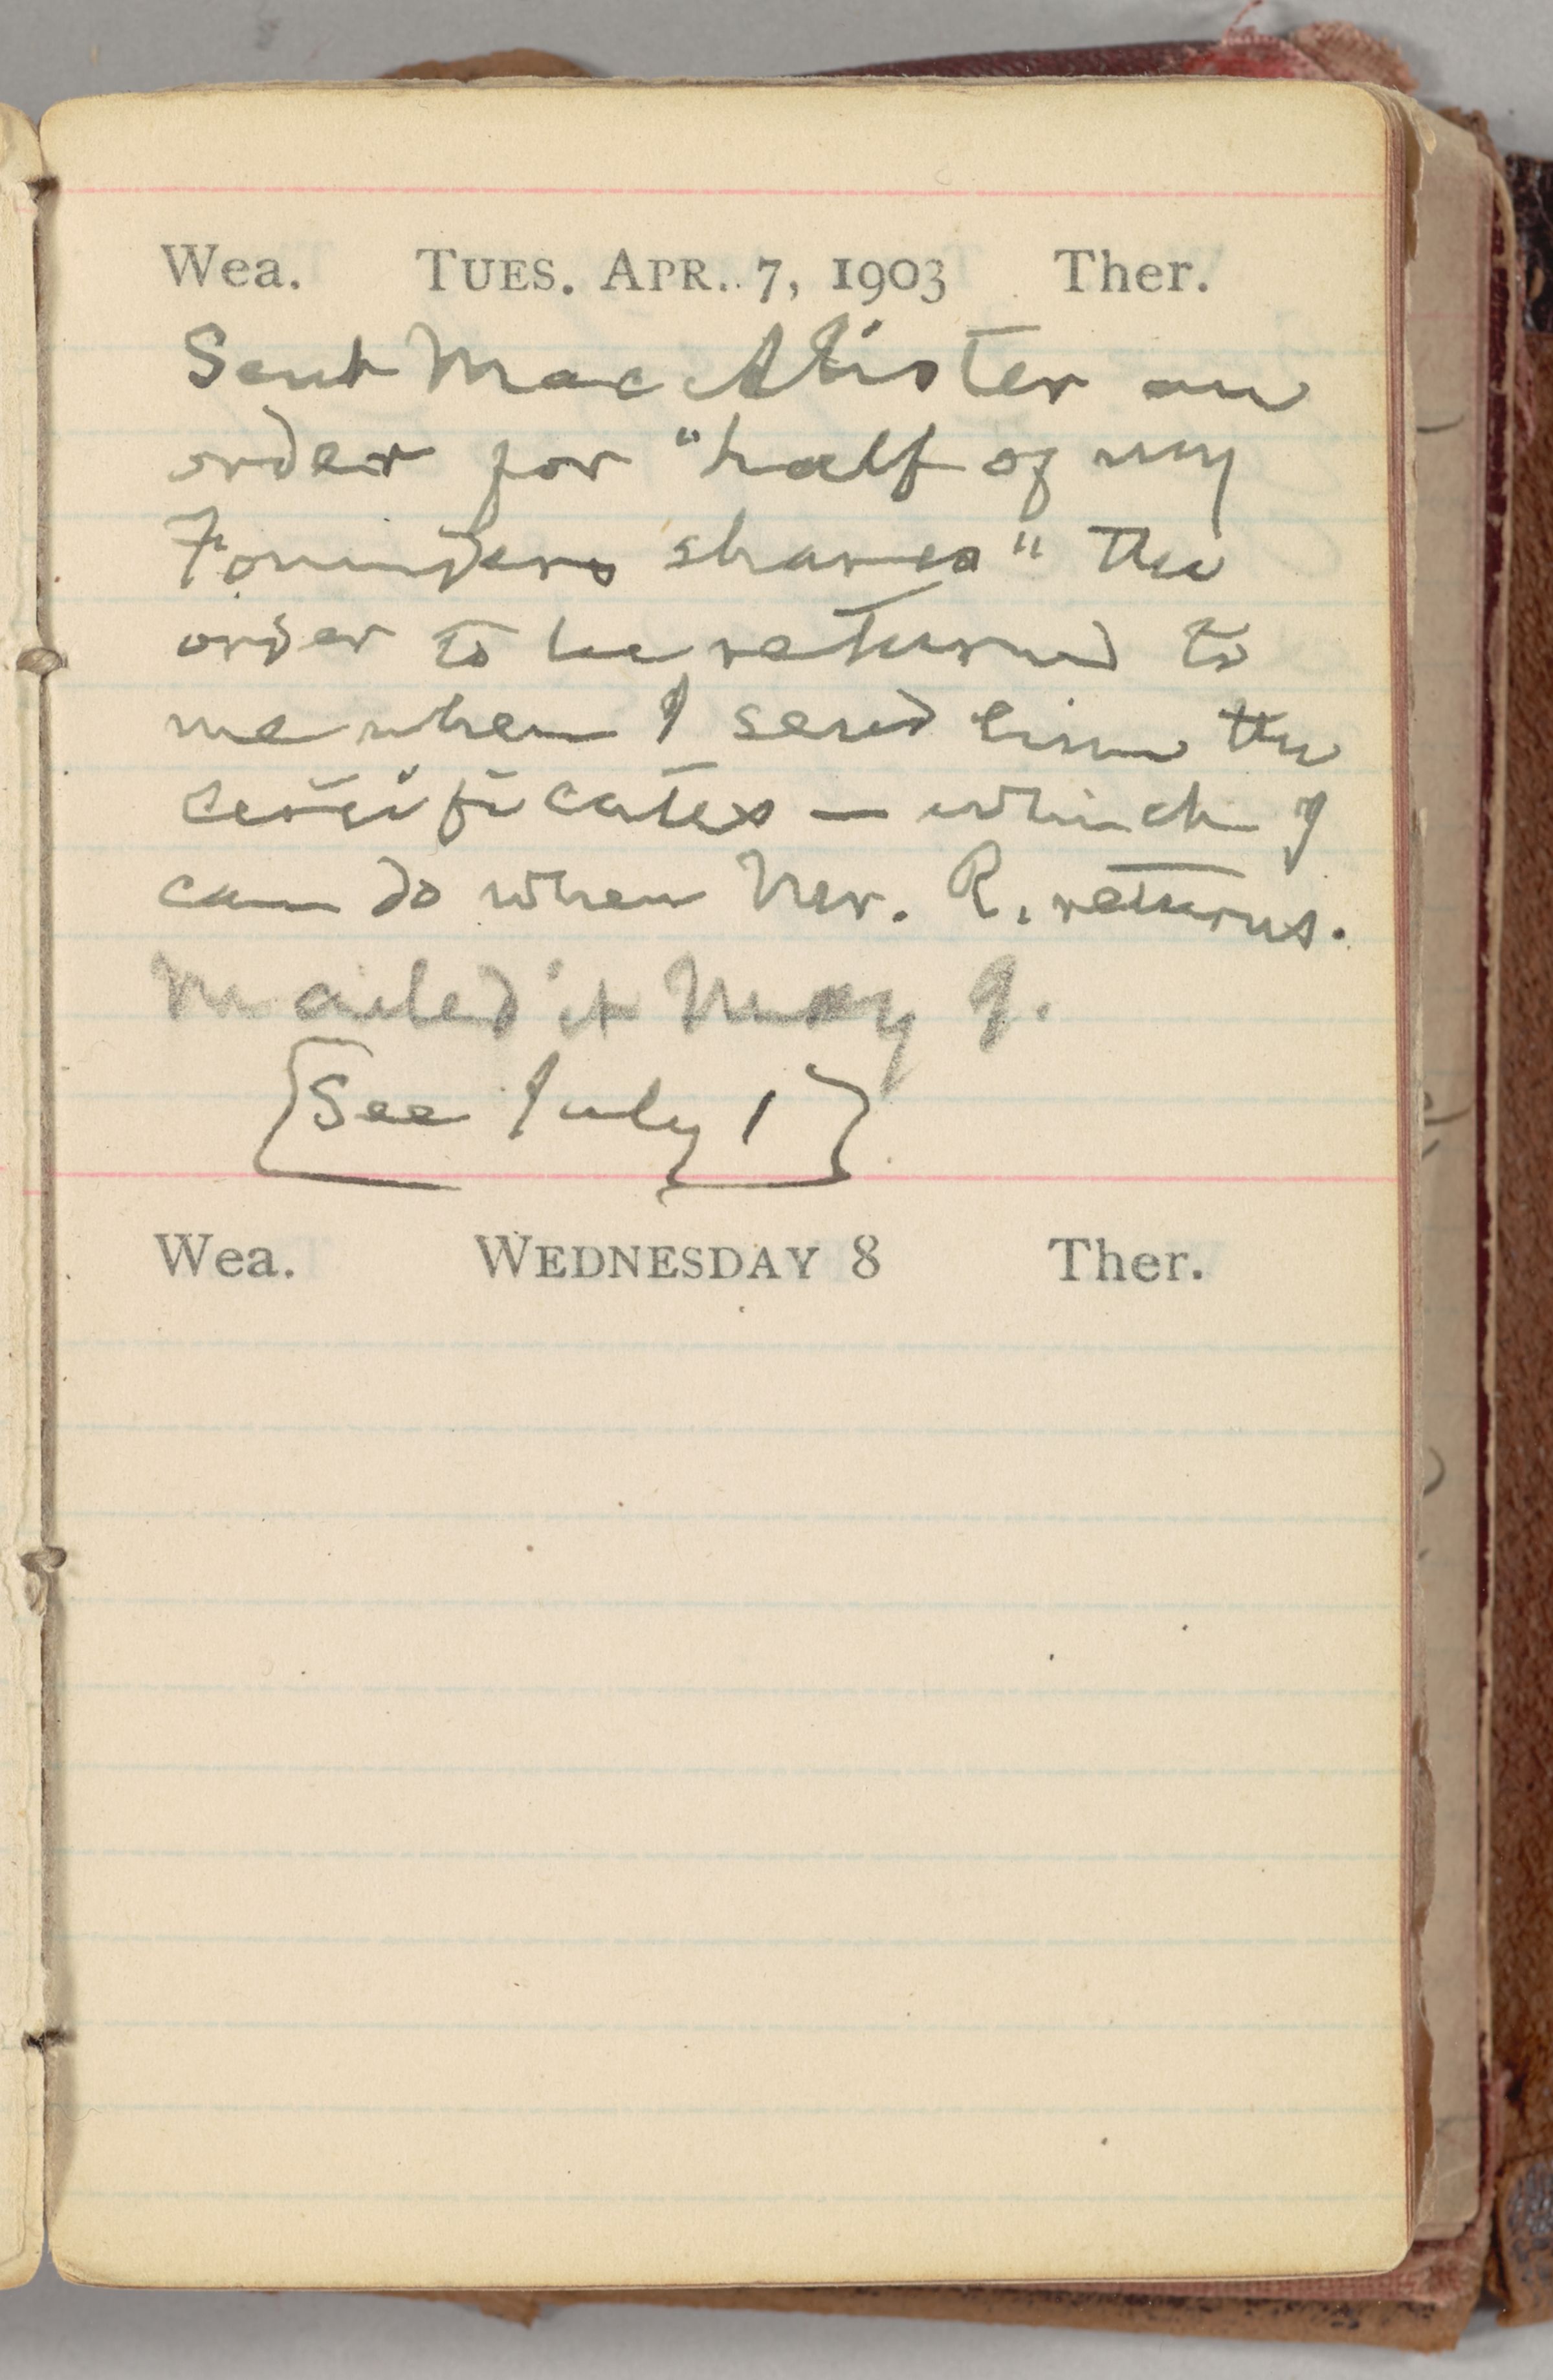 Wea. TUES. APR. 7, 1903 Ther.
Sent MacAlister an
order for "half of my
Founders shares" the
order to be returned to
me when I send him the
certificates — which I
can do when Mr. R. returns.
Mailed it May 9.
[See July 1]
Wea. WEDNESDAY 8 Ther.